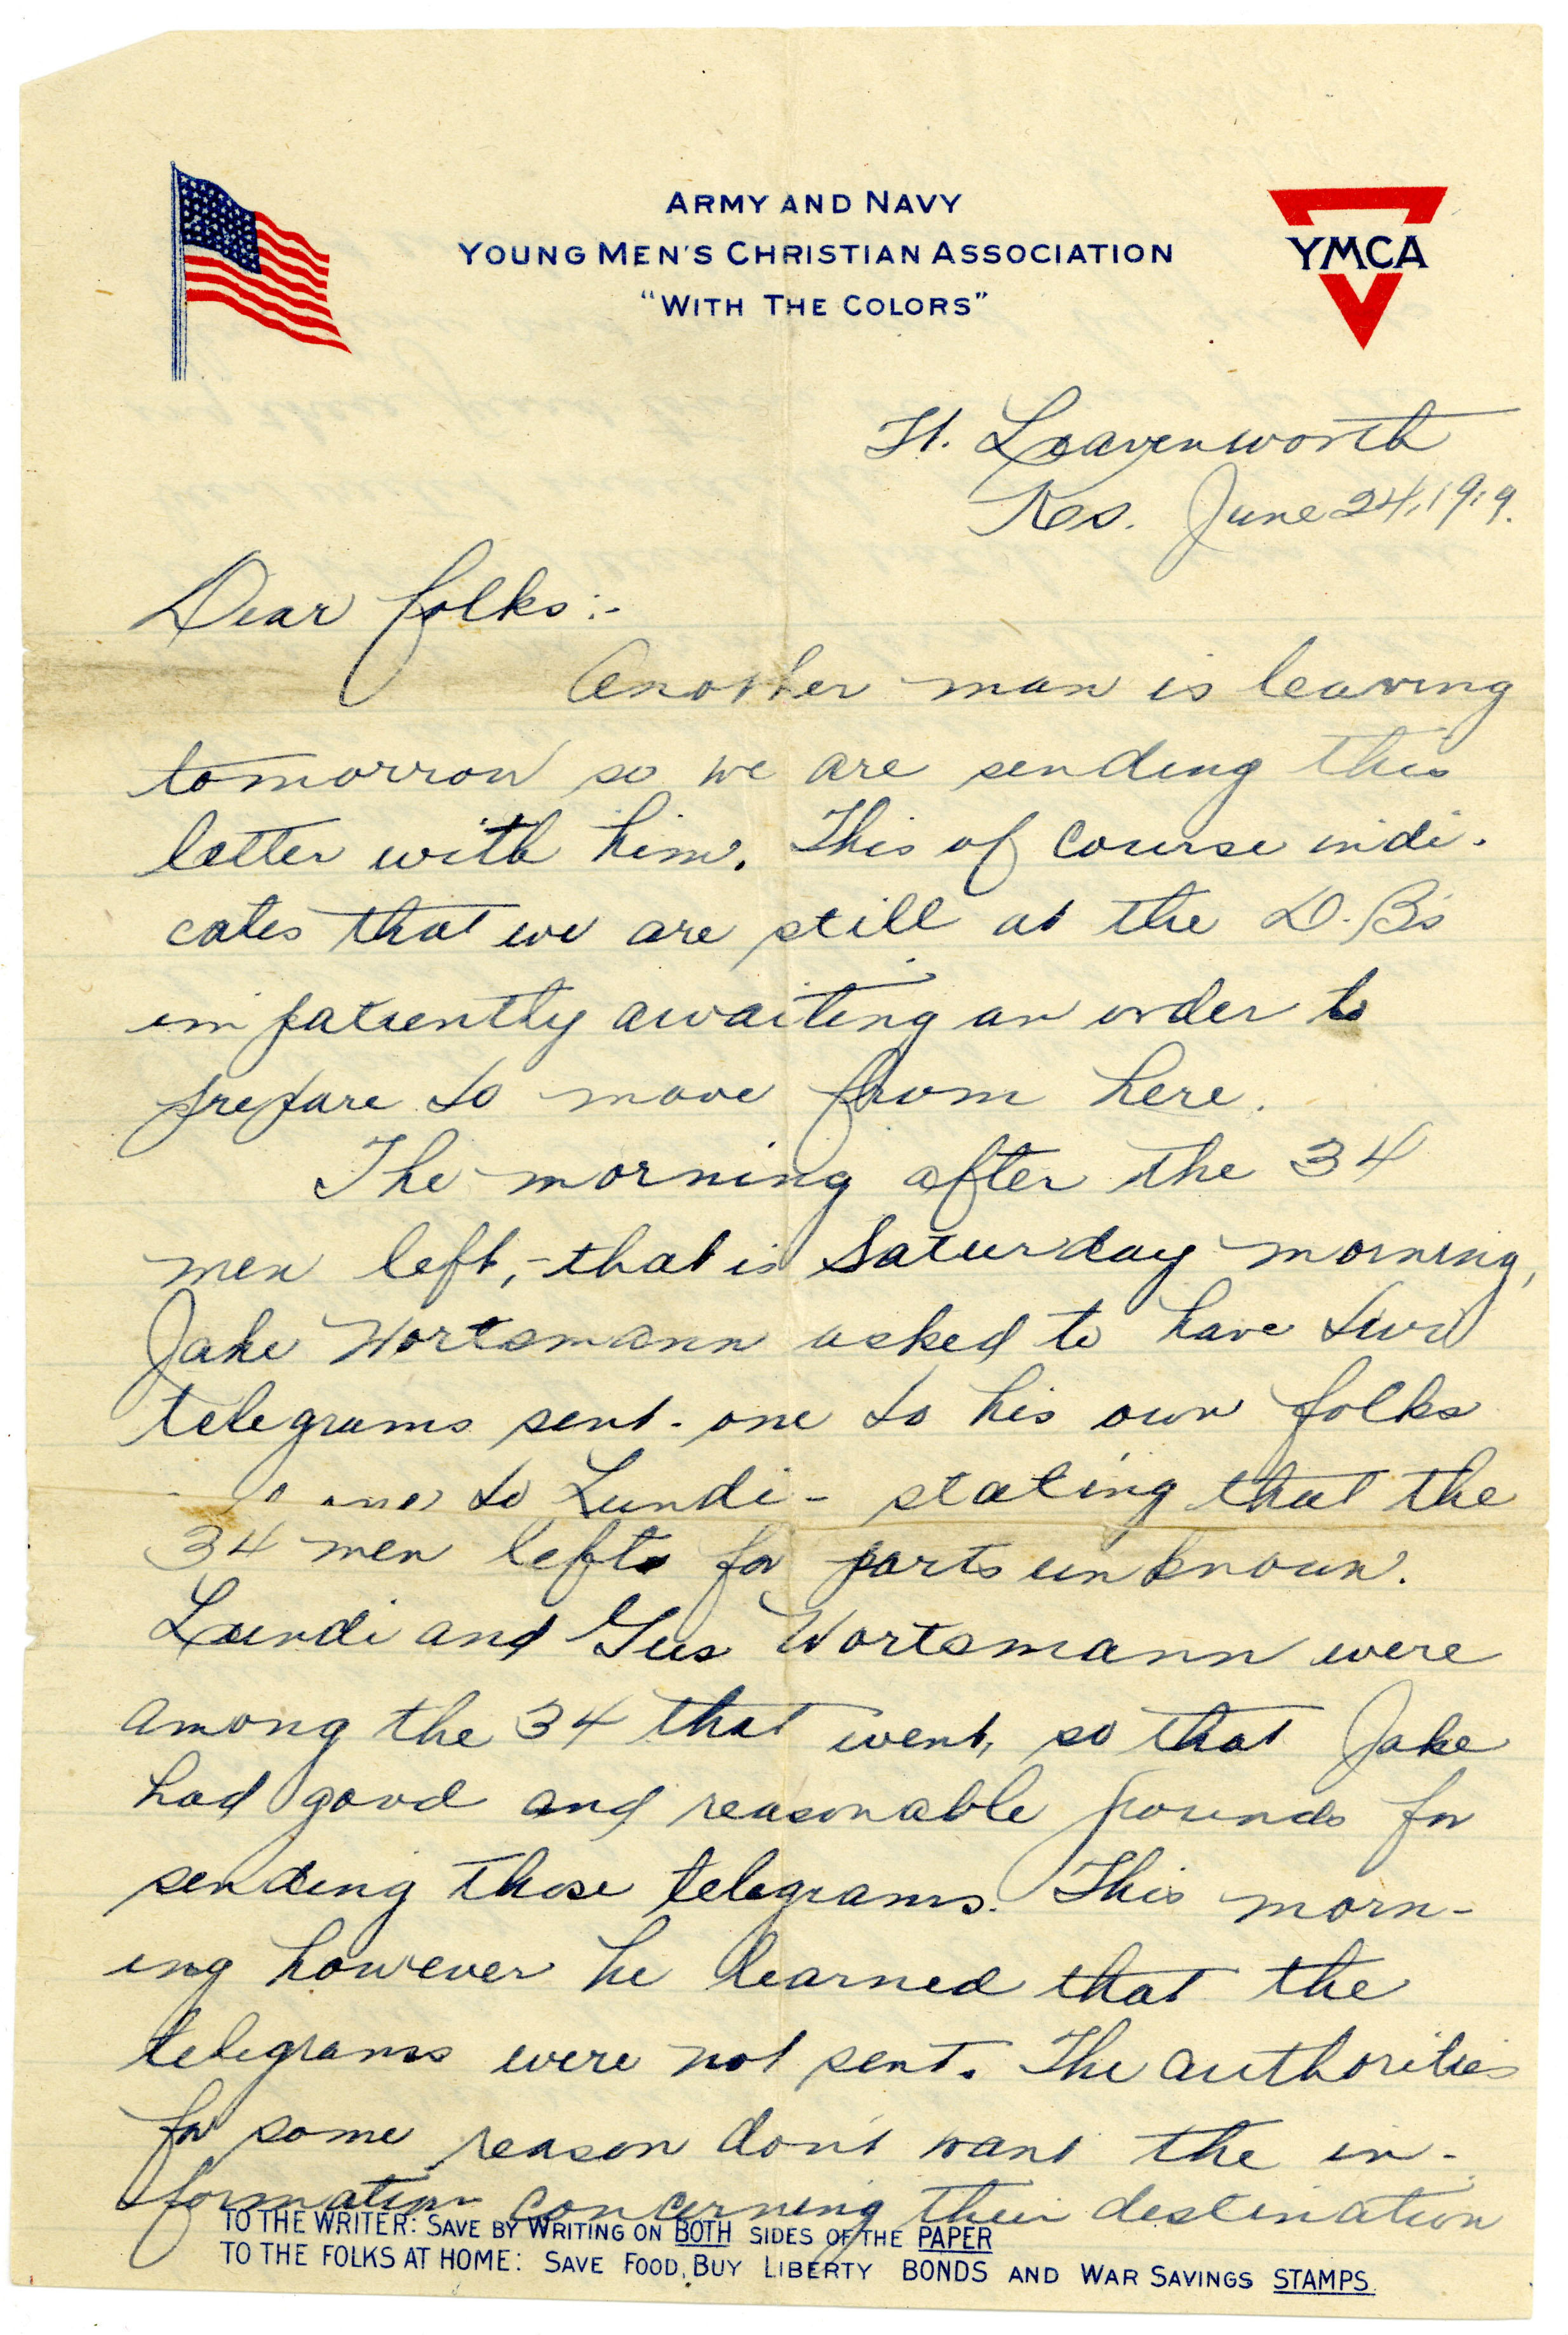 ARMY AND NAVY
YOUNG MEN'S CHRISTIAN ASSOCIATION
"WITH THE COLORS"
YMCA
Ft. Leavenworth
Kas. June 24, 1919.
Dear folks:-
Another man is leaving
tomorrow so we are sending this
letter with him. This of course indi-
cates that we are still at the D.B's
impatiently awaiting an order to
prepare to move from here.
The morning after the 34
men left,- that is Saturday morning,
Jake Wortsmann asked to have two
telegrams sent - one to his own folks
one to Lundi - stating that the
34 men left for parts unknown.
Lundi and Gus Wortsmann were
among the 34 that went, so that Jake
had good and reasonable grounds for
sending those telegrams. This morn-
ing however he learned that the
telegrams were not sent. The authorities
for some reason don't want the in-
formation concerning their destination
TO THE WRITER: SAVE BY WRITING ON BOTH SIDES OF THE PAPER
TO THE FOLKS AT HOME: SAVE FOOD, BUY LIBERTY BONDS AND WAR SAVINGS STAMPS.